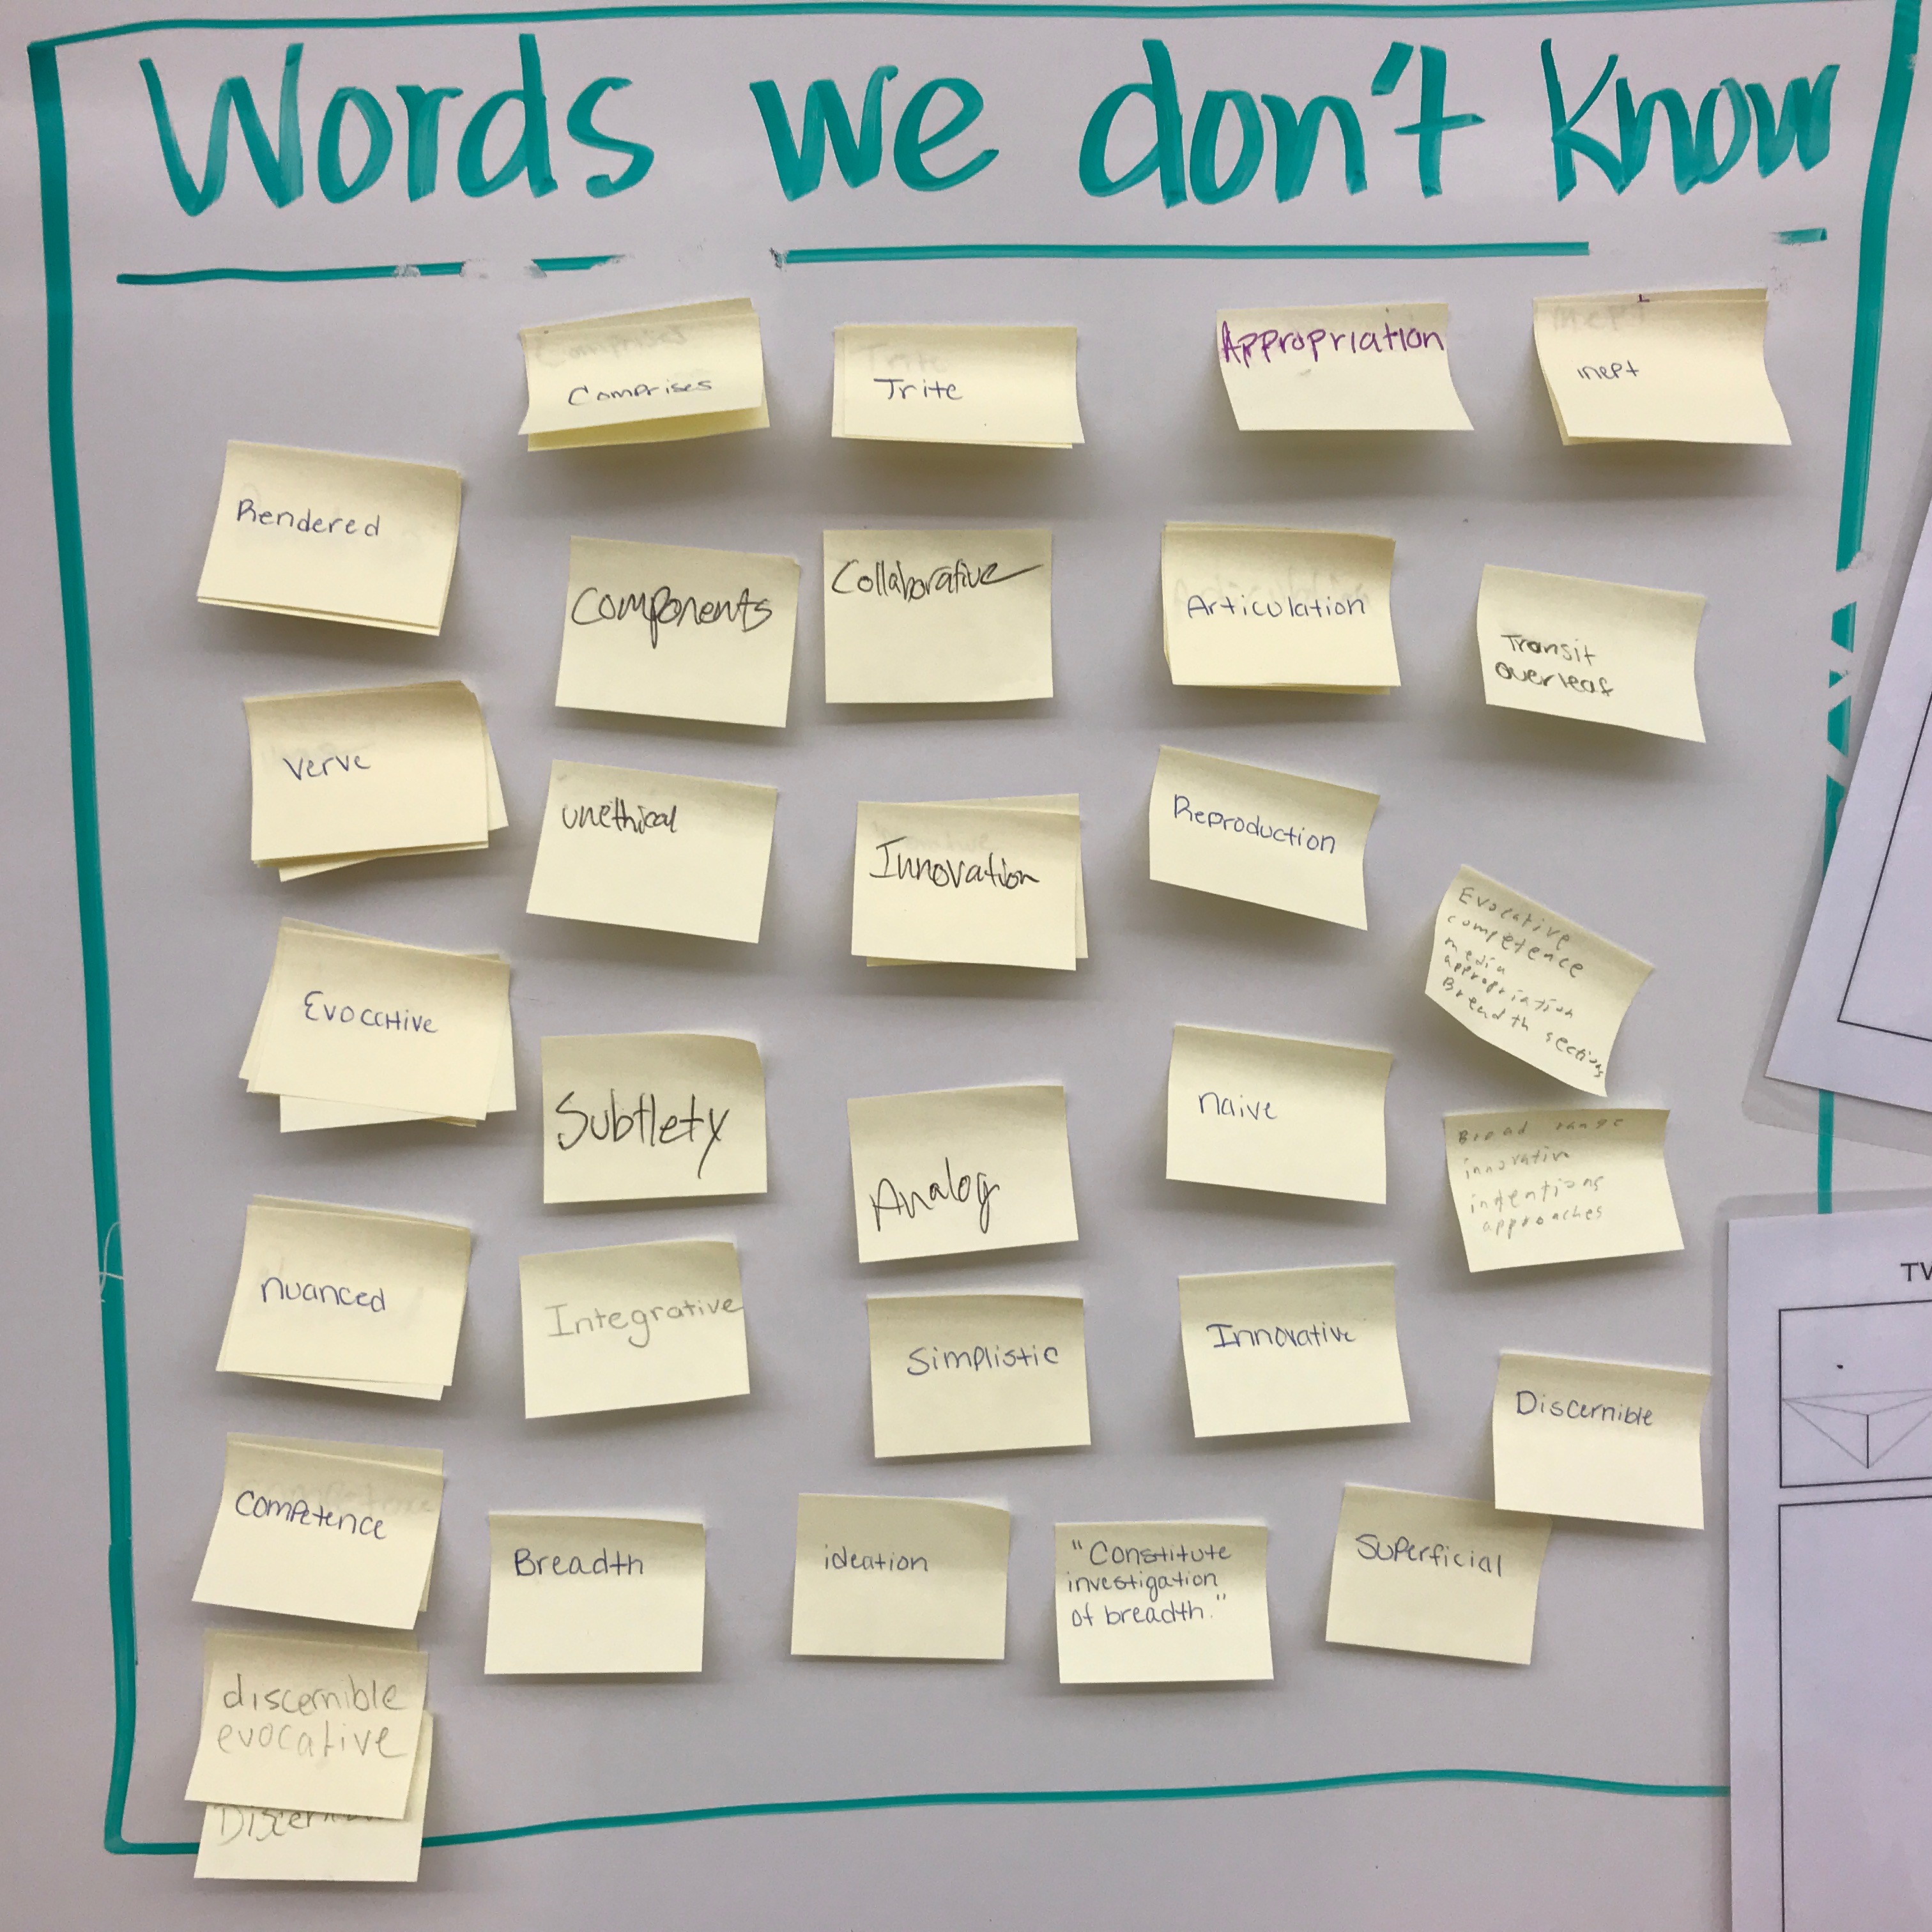 Words we don't know
Comprises
Trite
Appropriation
inept
Rendered
Components
Collaborative
Articulation
Transit
overleaf
verve
unethical
Innovation
Reproduction
Evocative
competence
media
appropriation
Breadth sections
Evocative
Subtlety
Analog
naive
Broad range
innovative
intentions
approaches
nuanced
Integrative
Simplistic
Innovative
Discernible
Competence
Breadth
ideation
"Constitute
investigation
of breadth."
Superficial
discernible
evocative
TW